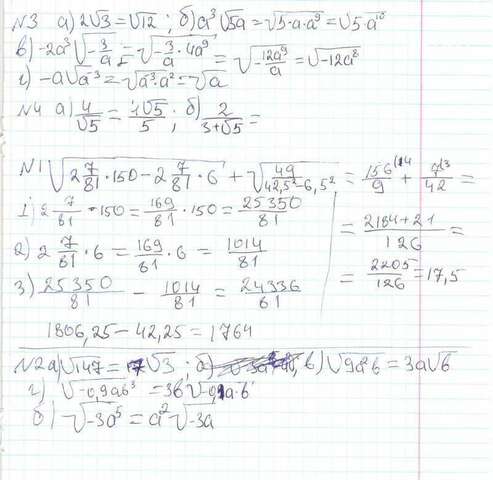 №3 а) 2√3 = √12 ; б) a³√5a = √5·a·a⁹ = √5·a¹⁰
в) -2a³√-3/a = √-3/a·4a⁹ = √-12a⁹/a = √-12a⁸
г) -a√a⁻³ = √a³·a² = √a
№4 а) 4/√5 = 4√5/5 ; б) 2/3+√5 =
№1 √2 7/81 · 150 - 2 7/81 · 6 + √49/42,5² - 6,5² = 156/9 + 7/42 =
1) 2 7/81 · 150 = 169/81 · 150 = 25350/81
= 2184+21/126 =
2) 2 7/81 · 6 = 169/81 · 6 = 1014/81
= 2205/126 = 17,5
3) 25350/81 - 1014/81 = 24336/81
1806,25 - 42,25 = 1764
№2 а) √147 = 7√3 ; в) √9a²b = 3a√b
г) √-0,9ab³ = 3b√-0,1a·b
б) √-3a⁵ = a²√-3a